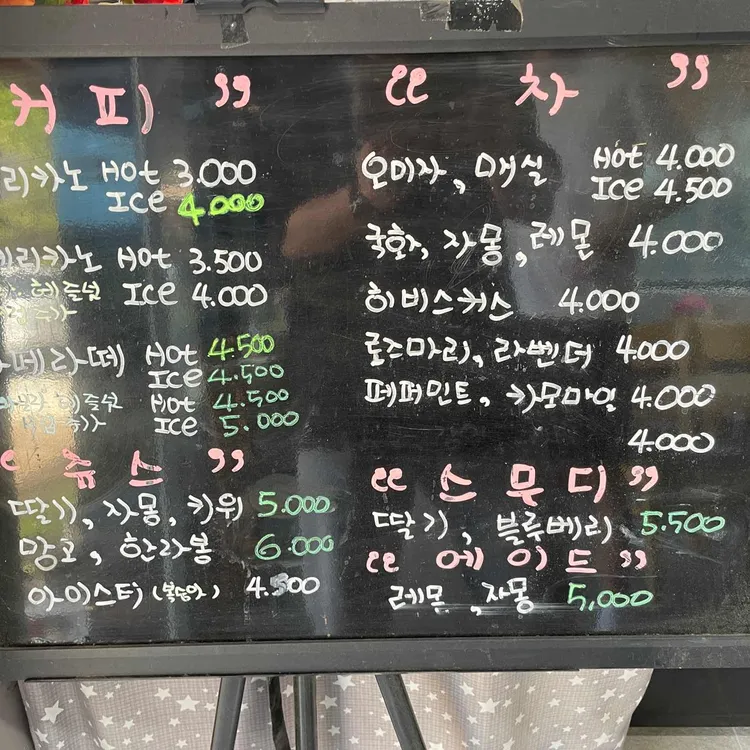 커피 ”
리카노 Hot 3.000
Ice 4.000
리카노 Hot 3.500
헤즐넛 Ice 4.000
추가
페라떼 Hot 4.500
Ice 4.500
헤즐넛 Hot 4.500
Ice 5.000
쥬스 ”
딸기, 자몽, 키위 5.000
망고, 한라봉 6.000
아이스티 (복숭아) 4.500
“ 차 ”
오미자, 매실 Hot 4.000
Ice 4.500
국화, 자몽, 레몬 4.000
히비스커스 4.000
로즈마리, 라벤더 4.000
페퍼민트, 카모마일 4.000
4.000
“ 스무디 ”
딸기, 블루베리 5.500
“ 에이드 ”
레몬, 자몽 5,000